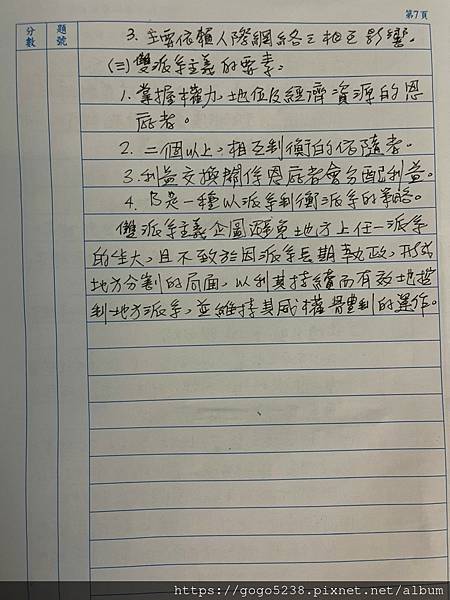 第7頁
分數
題號
3. 主要依賴人際網絡之相互影響。
(三)雙派系主義的要素:
1. 掌握權力、地位及經濟資源的恩
庇者。
2. 二個以上,相互制衡的依隨者。
3. 利益交換關係恩庇者會分配利益。
4. 乃是一種以派系制衡派系的策略。
雙派系主義企圖避免地方上任一派系
的坐大,且不致於因派系長期執政,形成
地方分割的局面,以利其持續而有效地控
制地方派系,並維持其威權體制的運作。
https://gogo5238.pixnet.net/album